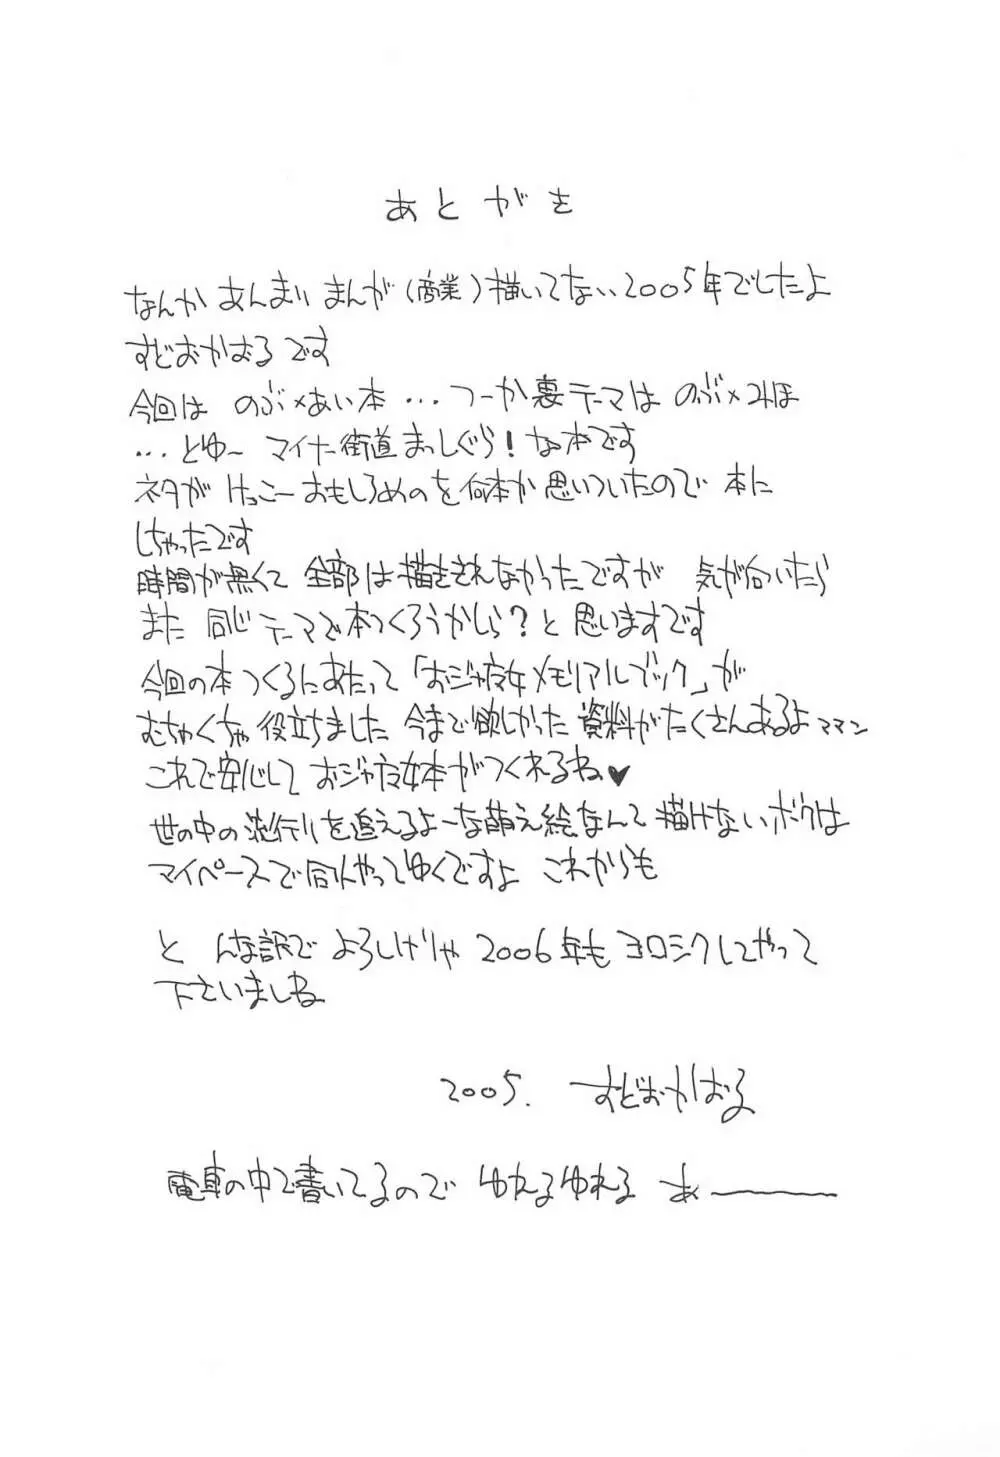 あとがき
なんか あんまり まんが(商業)描いてない2005年でしたよ
すどおかおるです
今回は のぶ×あい本 ... つーか裏テーマは のぶ×みほ
...とゆ〜 マイナー街道まっしぐら!な本です
ネタが けっこーおもしろめのを何本か思いついたので 本に
しちゃったです
時間が無くて 全部は描ききれなかったですが 気が向いたら
また 同じテーマで本つくろうかしら?と思いますです
今回の本つくるにあたって「おジャ魔女メモリアルブック」が
むちゃくちゃ役立ちました 今まで欲しかった資料がたくさんあるよママン
これで安心しておジャ魔女本がつくれるね♥
世の中の流行りを追えるよーな萌え絵なんて描けないボクは
マイペースで同人やってゆくですよ これからも
と んな訳で よろしげりゃ2006年もヨロシクしてやって
下さいましね
2005. すどおかおる
電車の中で書いてるので ゆれるゆれる あ――